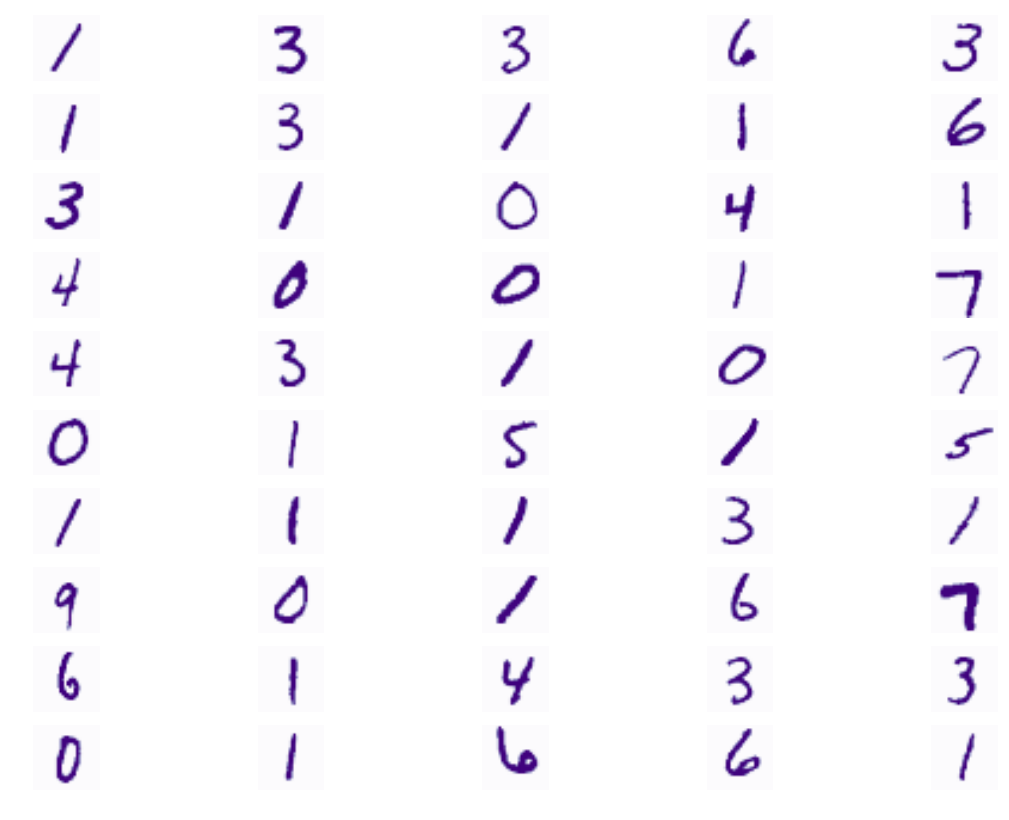 1 3 3 6 3
1 3 1 1 6
3 1 0 4 1
4 0 0 1 7
4 3 1 0 7
0 1 5 1 5
1 1 1 3 1
9 0 1 6 7
6 1 4 3 3
0 1 6 6 1